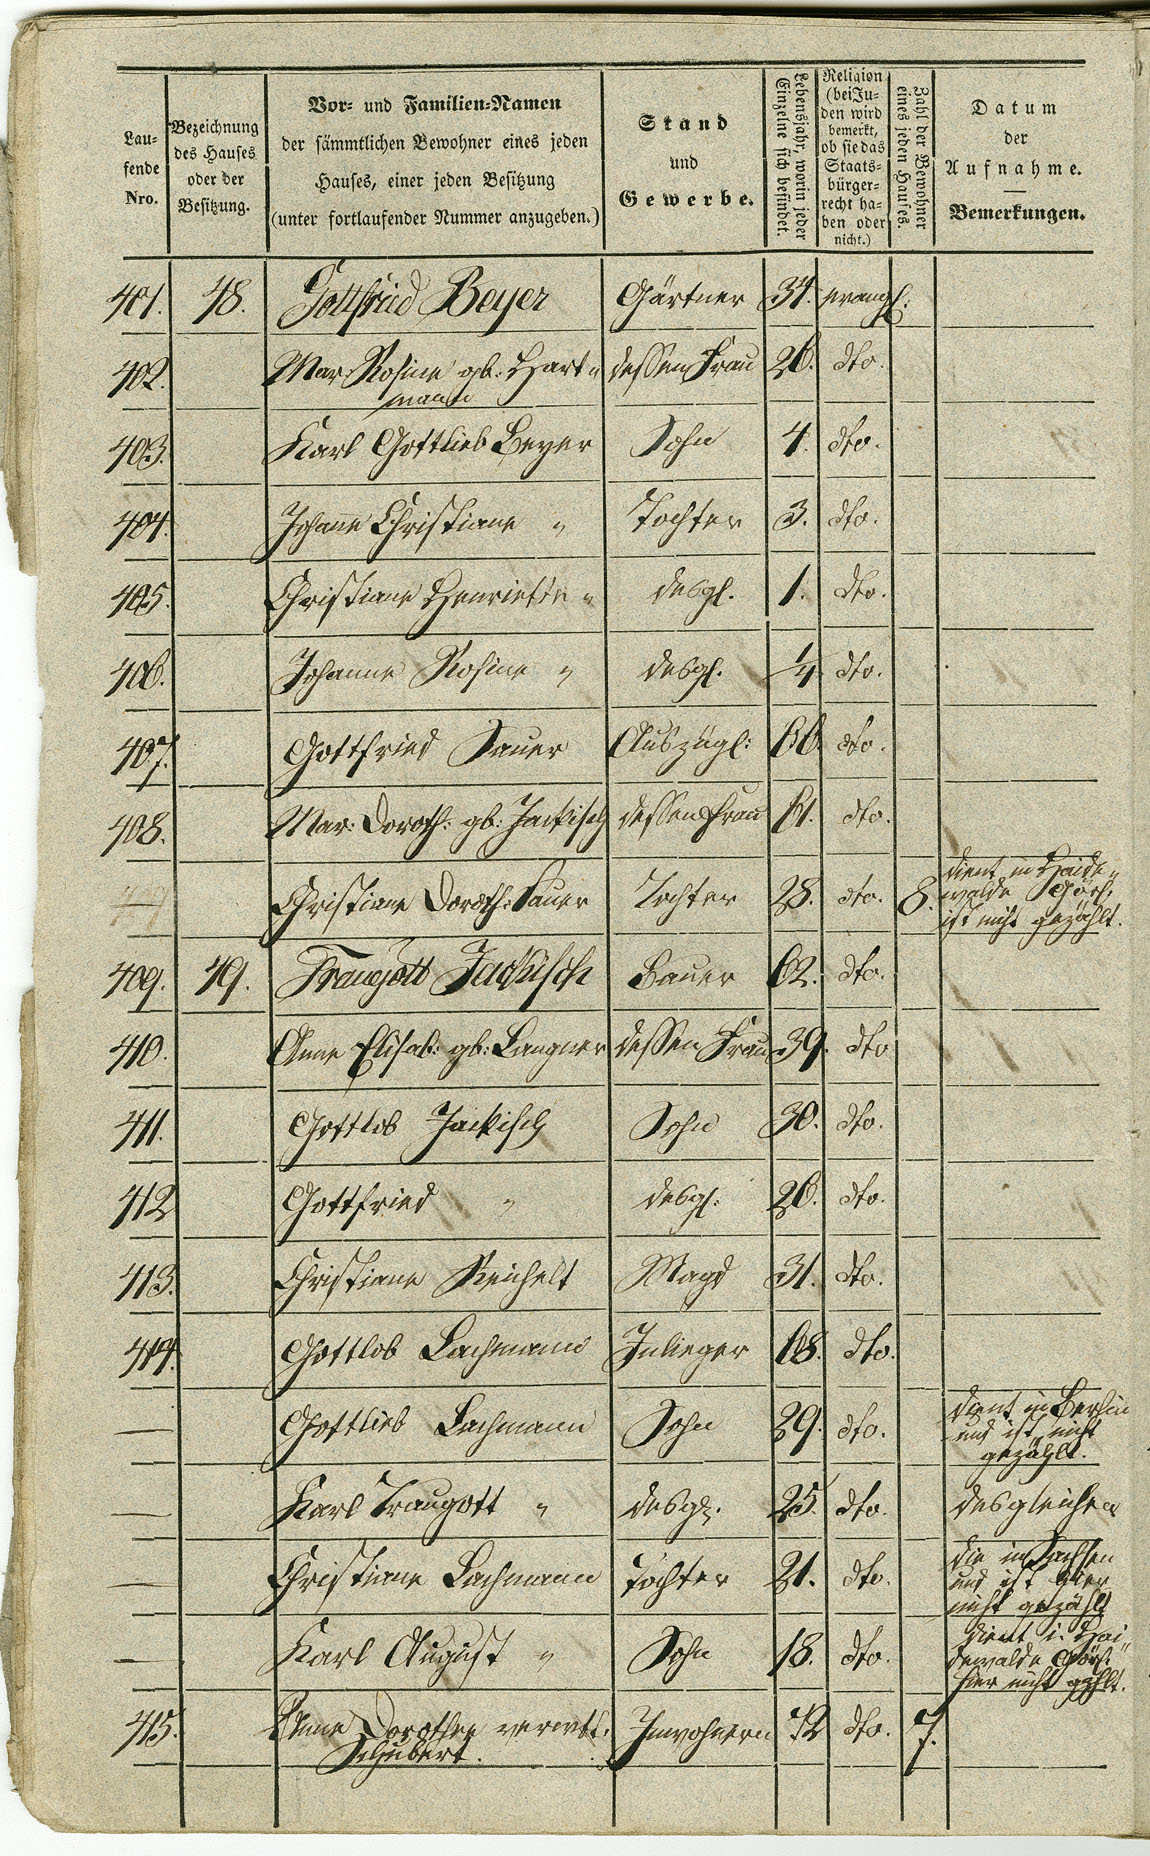 Lau-
fende
Nro.
Bezeichnung
des Hauses
oder der
Besitzung.
Vor- und Familien-Namen
der sämmtlichen Bewohner eines jeden
Hauses, einer jeden Besitzung
(unter fortlaufender Nummer anzugeben.)
Stand
und
Gewerbe.
Lebensjahr, worin jeder
Einzelne sich befindet.
Religion
(bei Ju-
den wird
bemerkt,
ob sie das
Staats-
bürger-
recht ha-
ben oder
nicht.)
Zahl der Bewohner
eines jeden Hauses.
Datum
der
Aufnahme.
Bemerkungen.
401. 48. Gottfried Beyer Gärtner 34. evangl.
402. Mar. Rosine gb: Hart- dessen Frau 26. dto.
mann
403. Karl Gottlieb Beyer Sohn 4. dto.
404. Johane Christiane " Tochter 3. dto.
405. Christiane Henriette " desgl. 1. dto.
406. Johanne Rosine " desgl. 1/4 dto.
407. Gottfried Sauer Auszügl: 66. dto.
408. Mar: Doroth: gb: Jackisch dessen Frau 61. dto.
Christiane Doroth: Sauer Tochter 28. dto. 8. dient in Haide-
walde Görl:
ist nicht gezählt.
409. 49. Traugott Jackisch Bauer 62. dto.
410. Anne Elisab: gb: Langner dessen Frau 39. dto
411. Gottlob Jackisch Sohn 30. dto.
412 Gottfried " desgl: 26. dto.
413. Christiane Reichelt Magd 31. dto.
414. Gottlob Lachmann Inlieger 68. dto.
— Gottlieb Lachmann Sohn 29. dto. dient in Berlin
und ist nicht
gezählt.
— Karl Traugott " desgl. 25. dto. desgleichen
— Christiane Lachmann Tochter 21. dto. die in Sachsen
und ist hier
nicht gezählt
— Karl August " Sohn 18. dto. dient i. Hai-
dewalde Görl:
hier nicht gzhlt.
415. Anne Dorothee verwtt. Inwohnern 72 dto. 7.
Schubert.